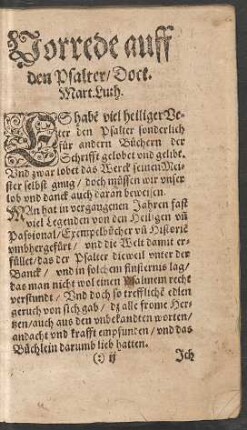 Vorrede auff
den Psalter/ Doct.
Mart. Luth.
ES habē viel heiliger Ve-
ter den Psalter sonderlich
für andern Büchern der
Schrifft gelobet vnd geliebt.
Vnd zwar lobet das Werck seinen Mei-
ster selbst gnug/ doch müssen wir vnser
lob vnd danck auch daran beweisen.
MAn hat in vergangenen Jahren fast
viel Legenden von den Heiligen vñ
Paßional/ Exempelbücher vñ Historiē
vmbhergefürt/ vnd die Welt damit er-
füllet/ das der Psalter dieweil vnter der
Banck/ vnd in solchem finsternis lag/
das man nicht wol einen Psalmen recht
verstundt/ Vnd doch so trefflichē edlen
geruch von sich gab/ dz alle frome Her-
tzen/ auch aus den vnbekandten worten/
andacht vnd krafft empfunden/ vnd das
Büchlein darumb lieb hatten.
(:) ij
Ich